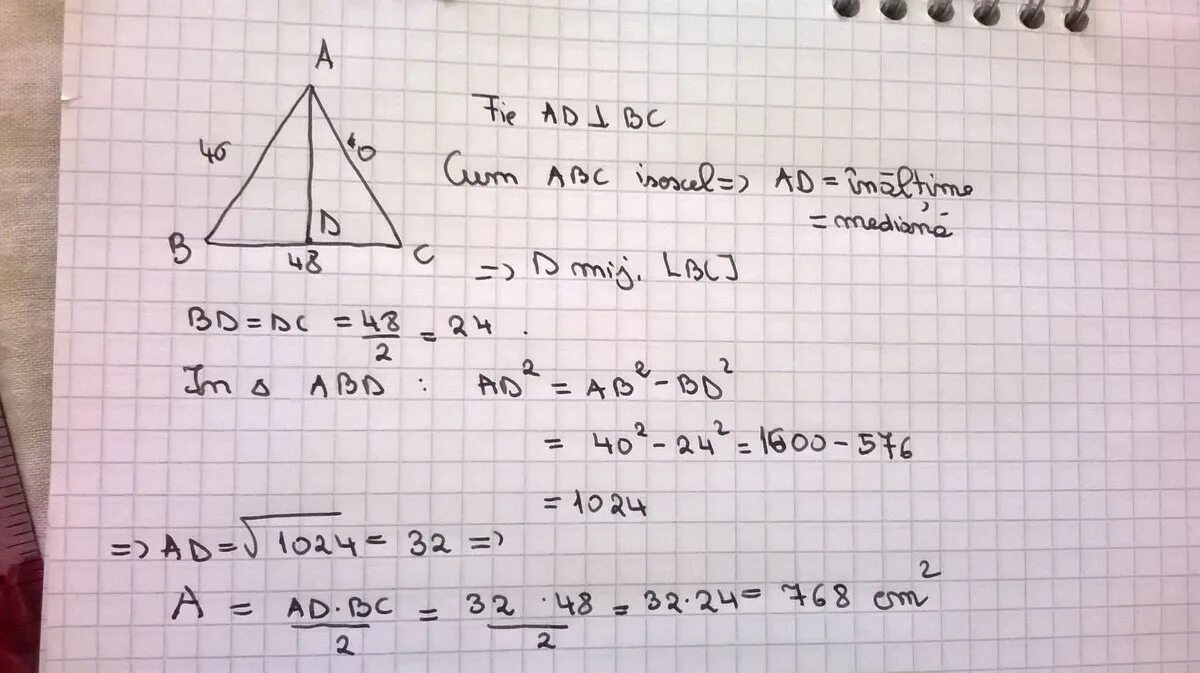 A
40
40
B
D
C
48
Fie AD ⊥ BC
Cum ABC isoscel => AD = înălțime
= mediană
=> D mij. [BC]
BD = DC = 48/2 = 24.
In Δ ABD : AD² = AB² - BD²
= 40² - 24² = 1600 - 576
= 1024
=> AD = √1024 = 32 =>
A = AD·BC/2 = 32·48/2 = 32·24 = 768 cm²